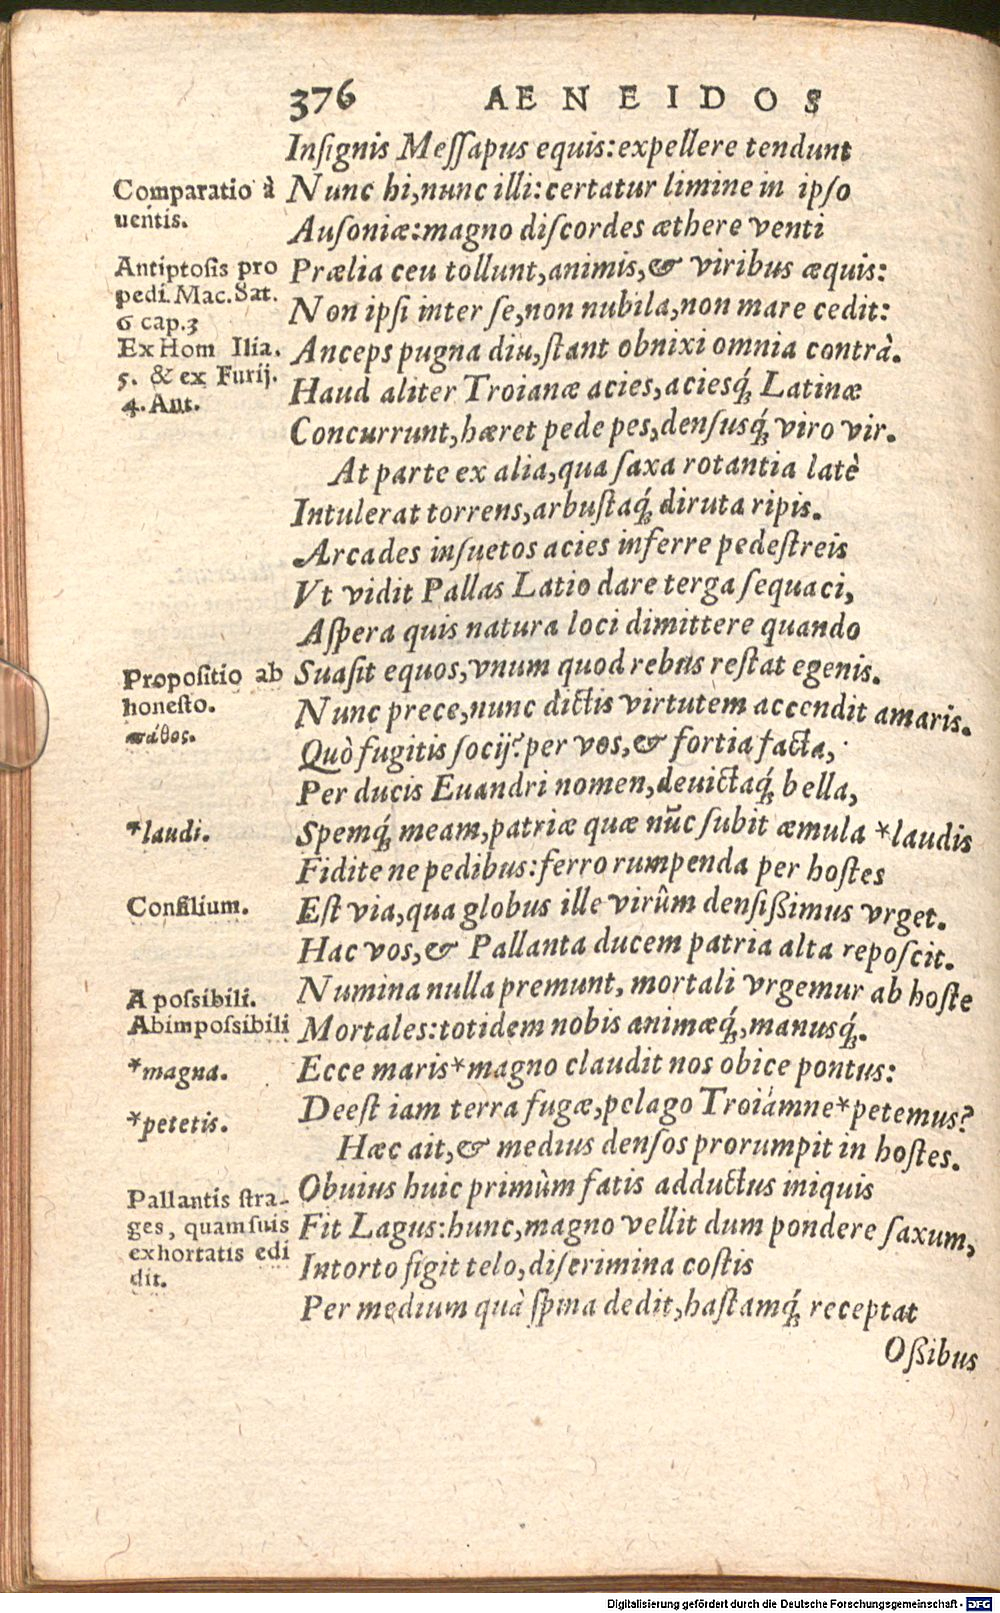 376 AENEIDOS
Inſignis Meſſapus equis: expellere tendunt
Comparatio à
uentis.
Nunc hi, nunc illi: certatur limine in ipſo
Auſoniæ: magno diſcordes æthere venti
Antiptosis pro
pedi. Mac. Sat.
6 cap. 3
Ex Hom Ilia.
5. & ex Furij.
4. Ant.
Prælia ceu tollunt, animis, & viribus æquis:
Non ipſi inter ſe, non nubila, non mare cedit:
Anceps pugna diu, ſtant obnixi omnia contrà.
Haud aliter Troianæ acies, aciesq́; Latinæ
Concurrunt, hæret pede pes, denſusq́; viro vir.
At parte ex alia, qua ſaxa rotantia latè
Intulerat torrens, arbuſtaq́; diruta ripis.
Arcades inſuetos acies inferre pedeſtreis
Vt vidit Pallas Latio dare terga ſequaci,
Aſpera quis natura loci dimittere quando
Propositio ab
honeſto.
πάθος.
Suaſit equos, vnum quod rebus reſtat egenis.
Nunc prece, nunc dictis virtutem accendit amaris.
Quò fugitis ſocij? per vos, & fortia facta,
Per ducis Euandri nomen, deuictaq́; bella,
*laudi.
Spemq́; meam, patriæ quæ nūc ſubit æmula *laudis
Fidite ne pedibus: ferro rumpenda per hoſtes
Conſilium.
Eſt via, qua globus ille virûm denſißimus vrget.
Hac vos, & Pallanta ducem patria alta repoſcit.
A poſsibili.
Abimpoſsibili
Numina nulla premunt, mortali vrgemur ab hoſte
Mortales: totidem nobis animæq́;, manusq́;.
*magna.
Ecce maris *magno claudit nos obice pontus:
*petetis.
Deeſt iam terra fugæ, pelago Troiámne *petemus?
Hæc ait, & medius denſos prorumpit in hoſtes.
Pallantis ſtra-
ges, quam ſuis
exhortatis edi
dit.
Obuius huic primùm fatis adductus iniquis
Fit Lagus: hunc, magno vellit dum pondere ſaxum,
Intorto figit telo, diſcrimina coſtis
Per medium quà ſpina dedit, haſtamq́; receptat
Oßibus
Digitalisierung gefördert durch die Deutsche Forschungsgemeinschaft - DFG